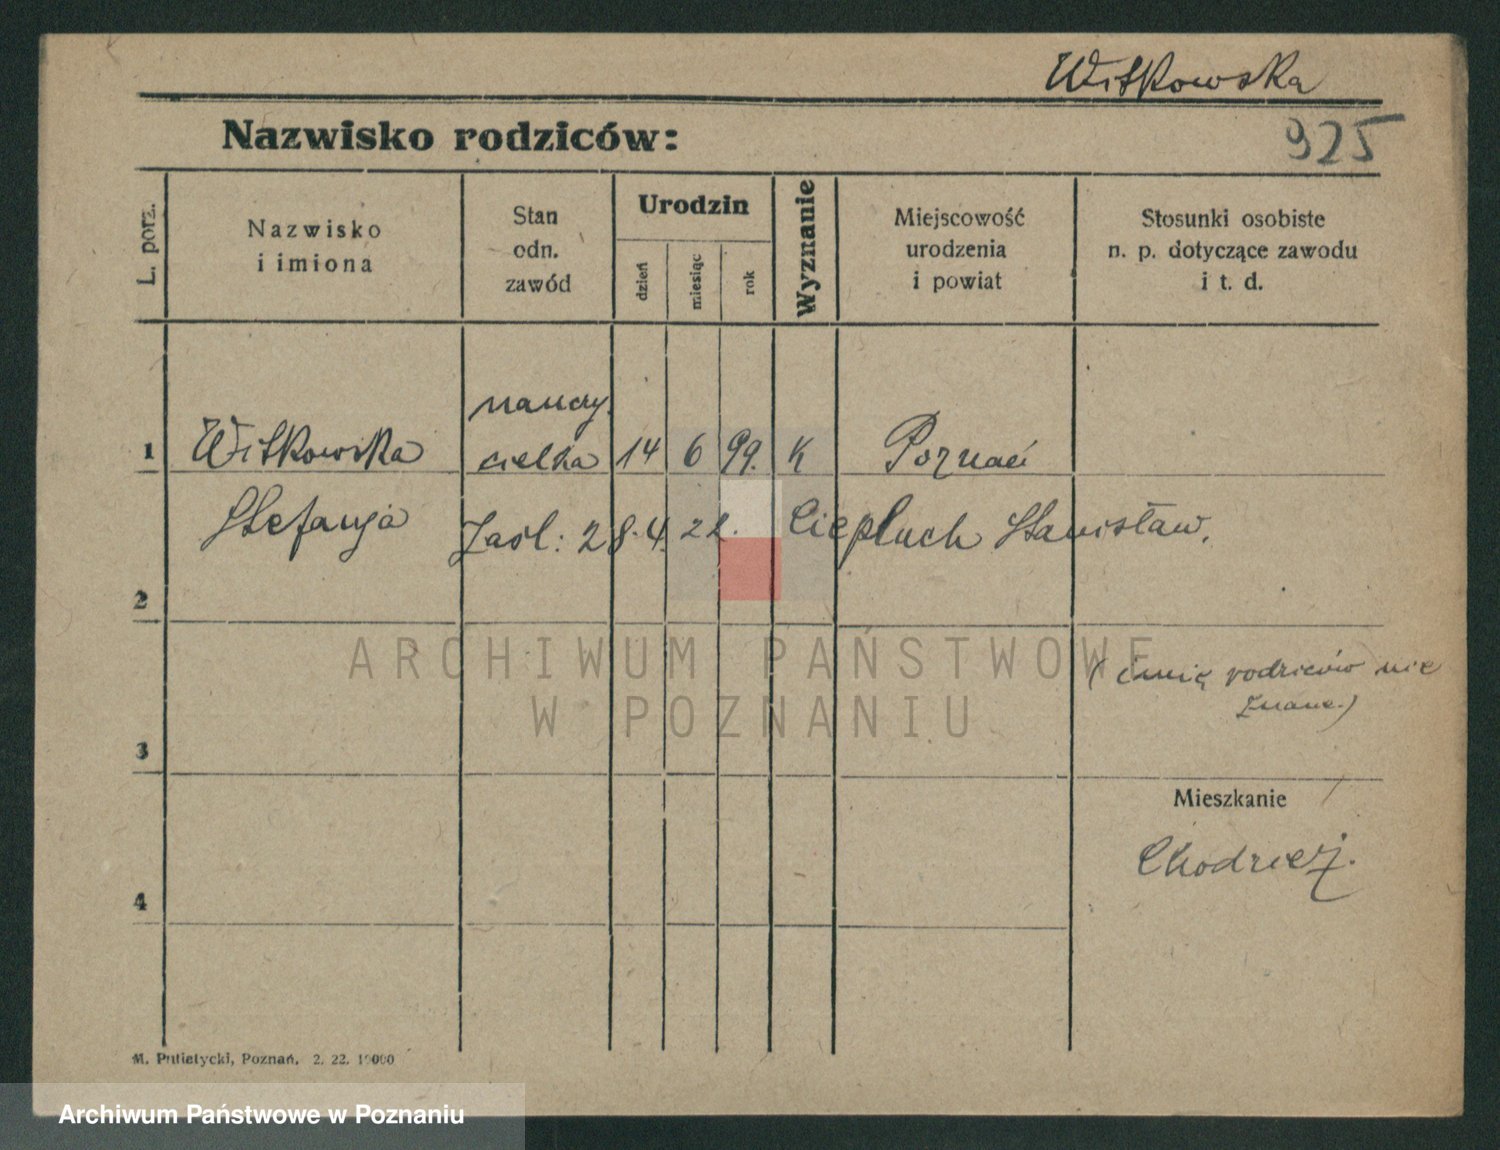 Witkowska
Nazwisko rodziców:
925
L. porz.
Nazwisko
i imiona
Stan
odn.
zawód
Urodzin
dzień
miesiąc
rok
Wyznanie
Miejscowość
urodzenia
i powiat
Stosunki osobiste
n. p. dotyczące zawodu
i t. d.
nauczy
1 Witkowska cielka 14 6 99. K Poznań
Stefanja Zaśl: 28.4. 22. Ciepluch Stanisław.
2
ARCHIWUM PAŃSTWOWE
W POZNANIU
(imię rodziców nie
znane.)
3
Mieszkanie
Chodzież.
4
M. Putiatycki, Poznań, 2. 22. 10000
Archiwum Państwowe w Poznaniu